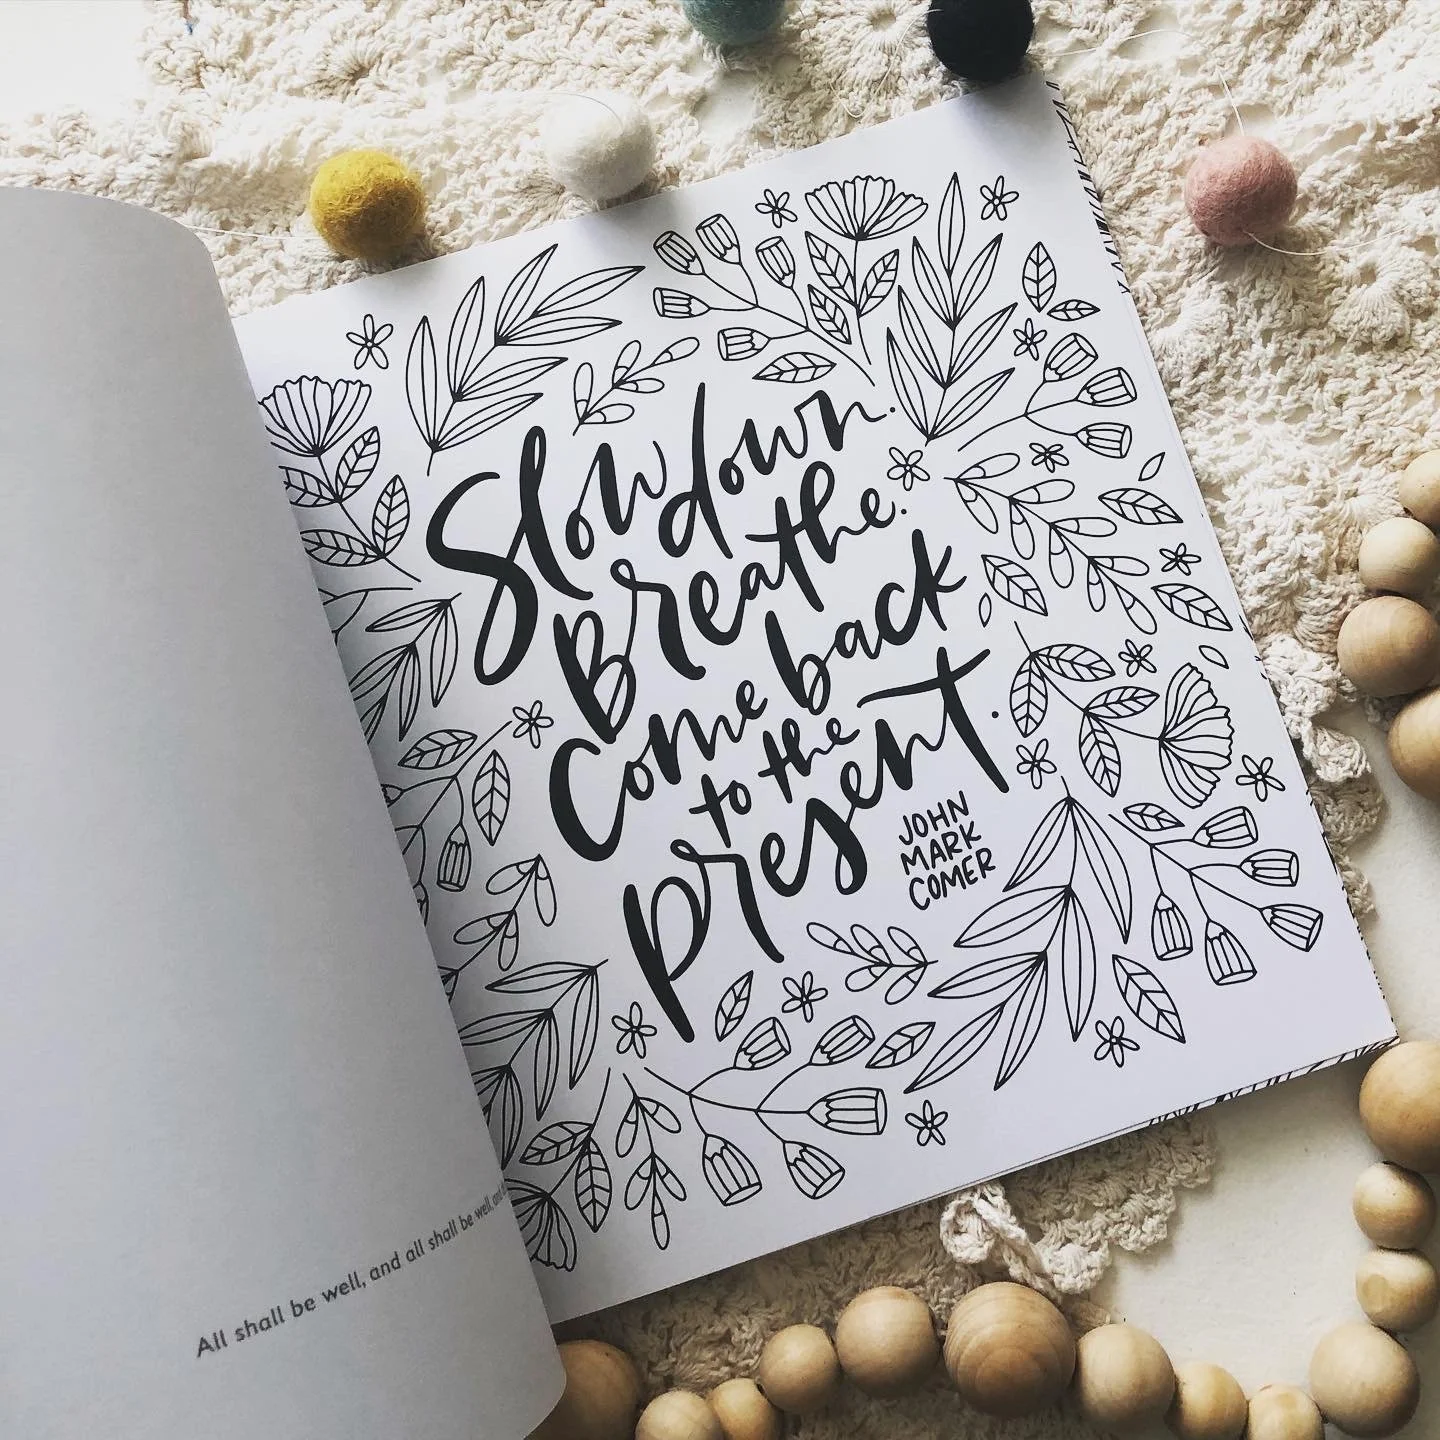 Slow down.
Breathe.
Come back
to the
present.
JOHN
MARK
COMER
All shall be well, and all shall be well, and